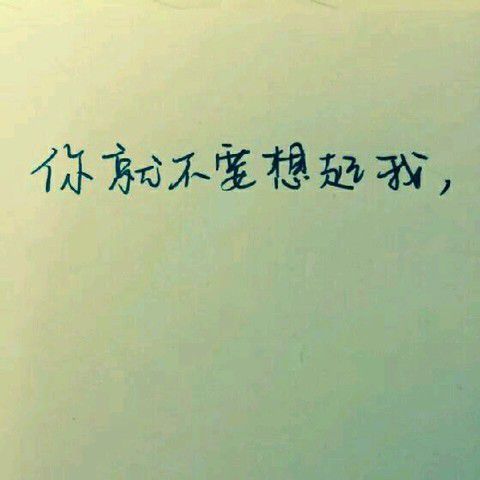 你就不要想起我，